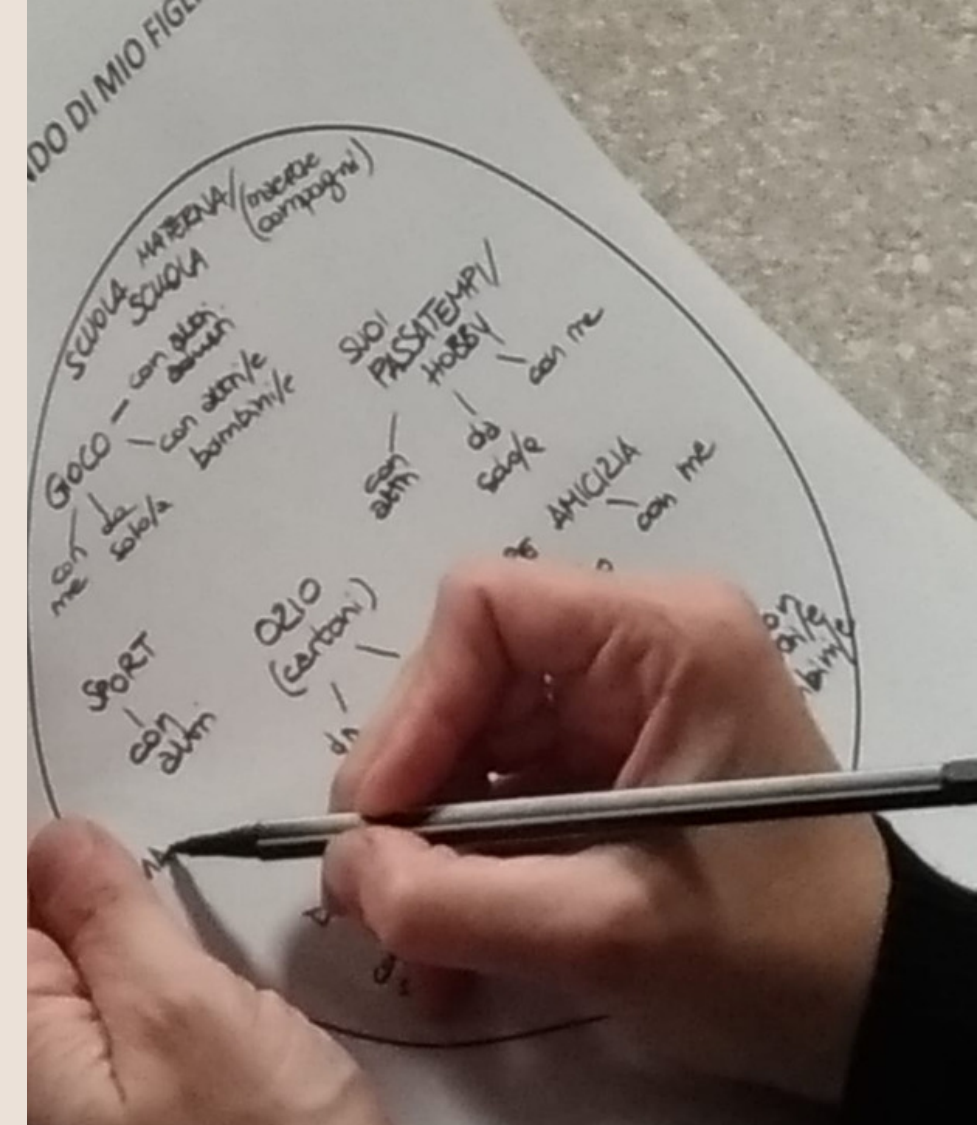 DO DI MIO FIGL
SCUOLA MATERNA/
SCUOLA
compagni)
GIOCO
con altri
con altri/e
bambini/e
con
me
da
solo/a
SUOI
PASSATEMPI/
HOBBY
con
altri
da
solo/a
con me
AMICIZIA
con me
SPORT
con
altri
OZIO
(cartoni)